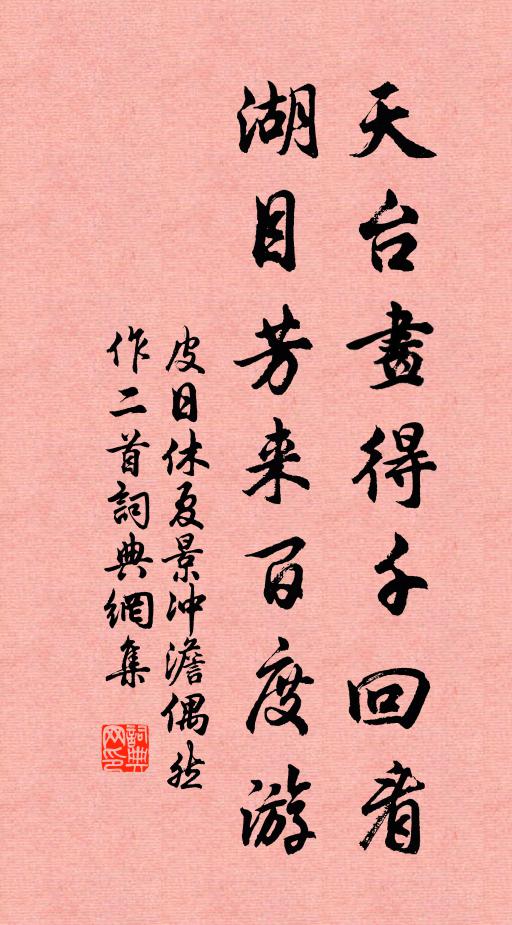 天台畫得千回看
湖目芳来百度游
皮日休夏景沖澹偶然
作二首詞典網集
詞典网印